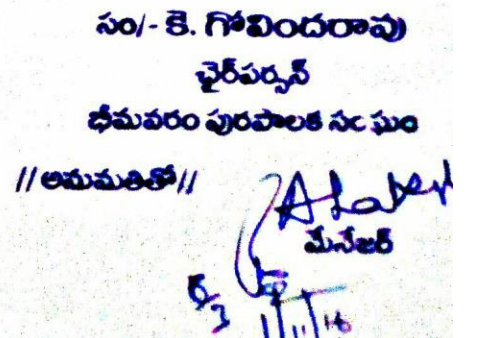 సం/- కె. గోవిందరావు
ఛైర్‌పర్సన్
భీమవరం పురపాలక సంఘం
//అనుమతితో//
మేనేజర్